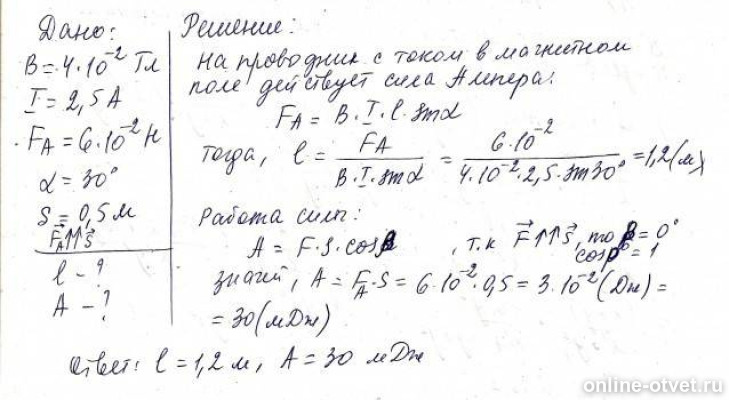 Дано:
B = 4·10⁻² Тл
I = 2,5 А
F_A = 6·10⁻² Н
α = 30°
S = 0,5 м
F⃗_A↑↑S⃗
l - ?
A - ?
Решение:
На проводник с током в магнитном
поле действует сила Ампера:
F_A = B·I·l·sinα
Тогда, l = F_A / (B·I·sinα) = 6·10⁻² / (4·10⁻²·2,5·sin30°) = 1,2 (м)
Работа силы:
A = F·S·cosβ, т.к F⃗↑↑S⃗, то β = 0°
cos0° = 1
значит, A = F_A·S = 6·10⁻²·0,5 = 3·10⁻² (Дж) =
= 30 (мДж)
Ответ: l = 1,2 м, A = 30 мДж
online-otvet.ru